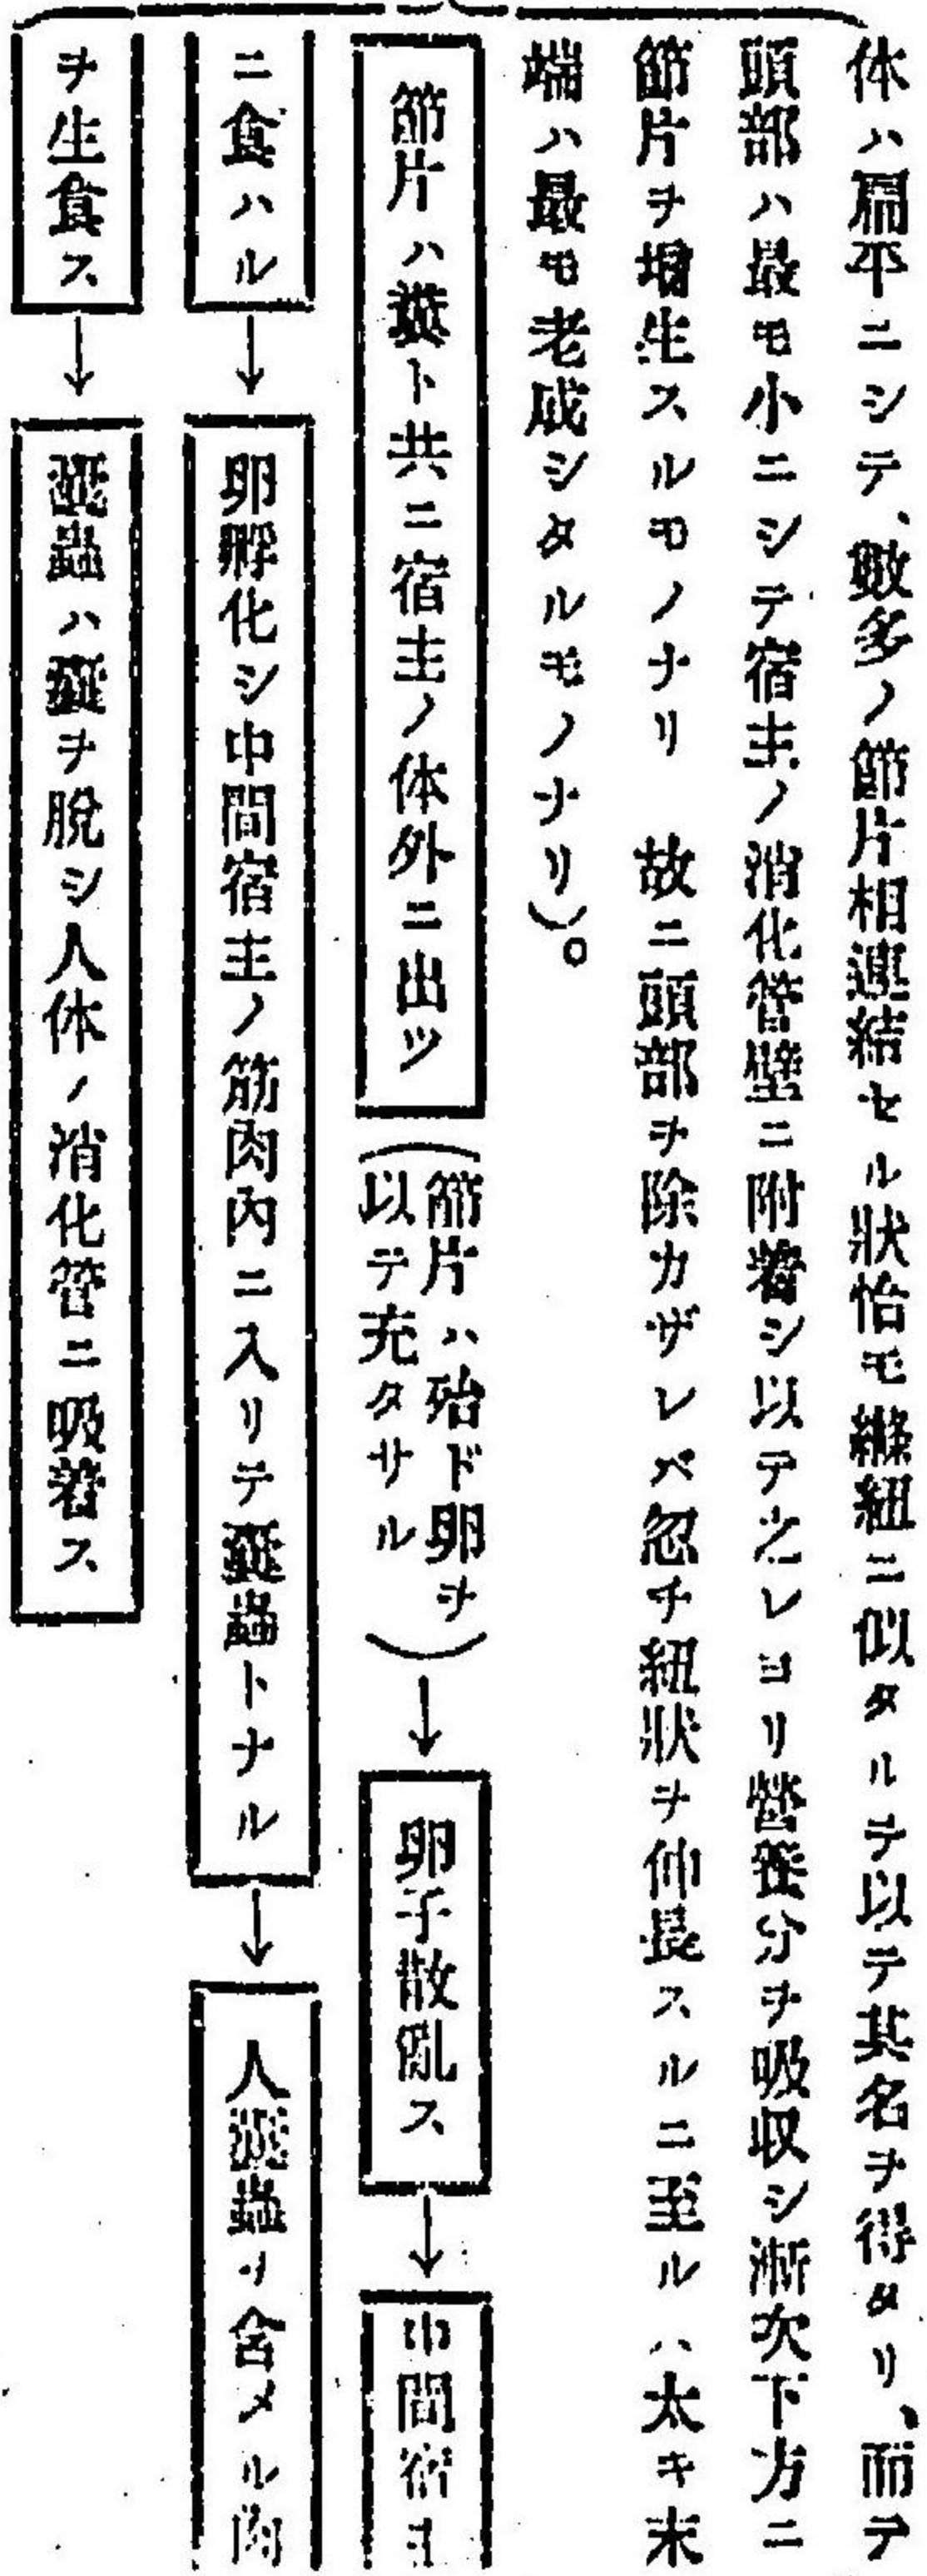 体ハ扁平ニシテ、数多ノ節片相連結セル狀恰モ絛紐ニ似タルヲ以テ其名ヲ得タリ、而テ
頭部ハ最モ小ニシテ宿主ノ消化管壁ニ附着シ以テ之レヨリ營養分ヲ吸収シ漸次下方ニ
節片ヲ增生スルモノナリ 故ニ頭部ヲ除カザレバ忽チ紐狀ヲ伸長スルニ至ル ハ太キ末
端ハ最モ老成シタルモノナリ)。
節片ハ糞ト共ニ宿主ノ体外ニ出ツ (節片ハ殆ド卵ヲ以テ充タサル) → 卵子散亂ス → 中間宿主
ニ食ハル → 卵孵化シ中間宿主ノ筋肉内ニ入リテ嚢蟲トナル → 人嚢蟲ヲ含メル肉
ヲ生食ス → 嚢蟲ハ嚢ヲ脱シ人体ノ消化管ニ吸着ス